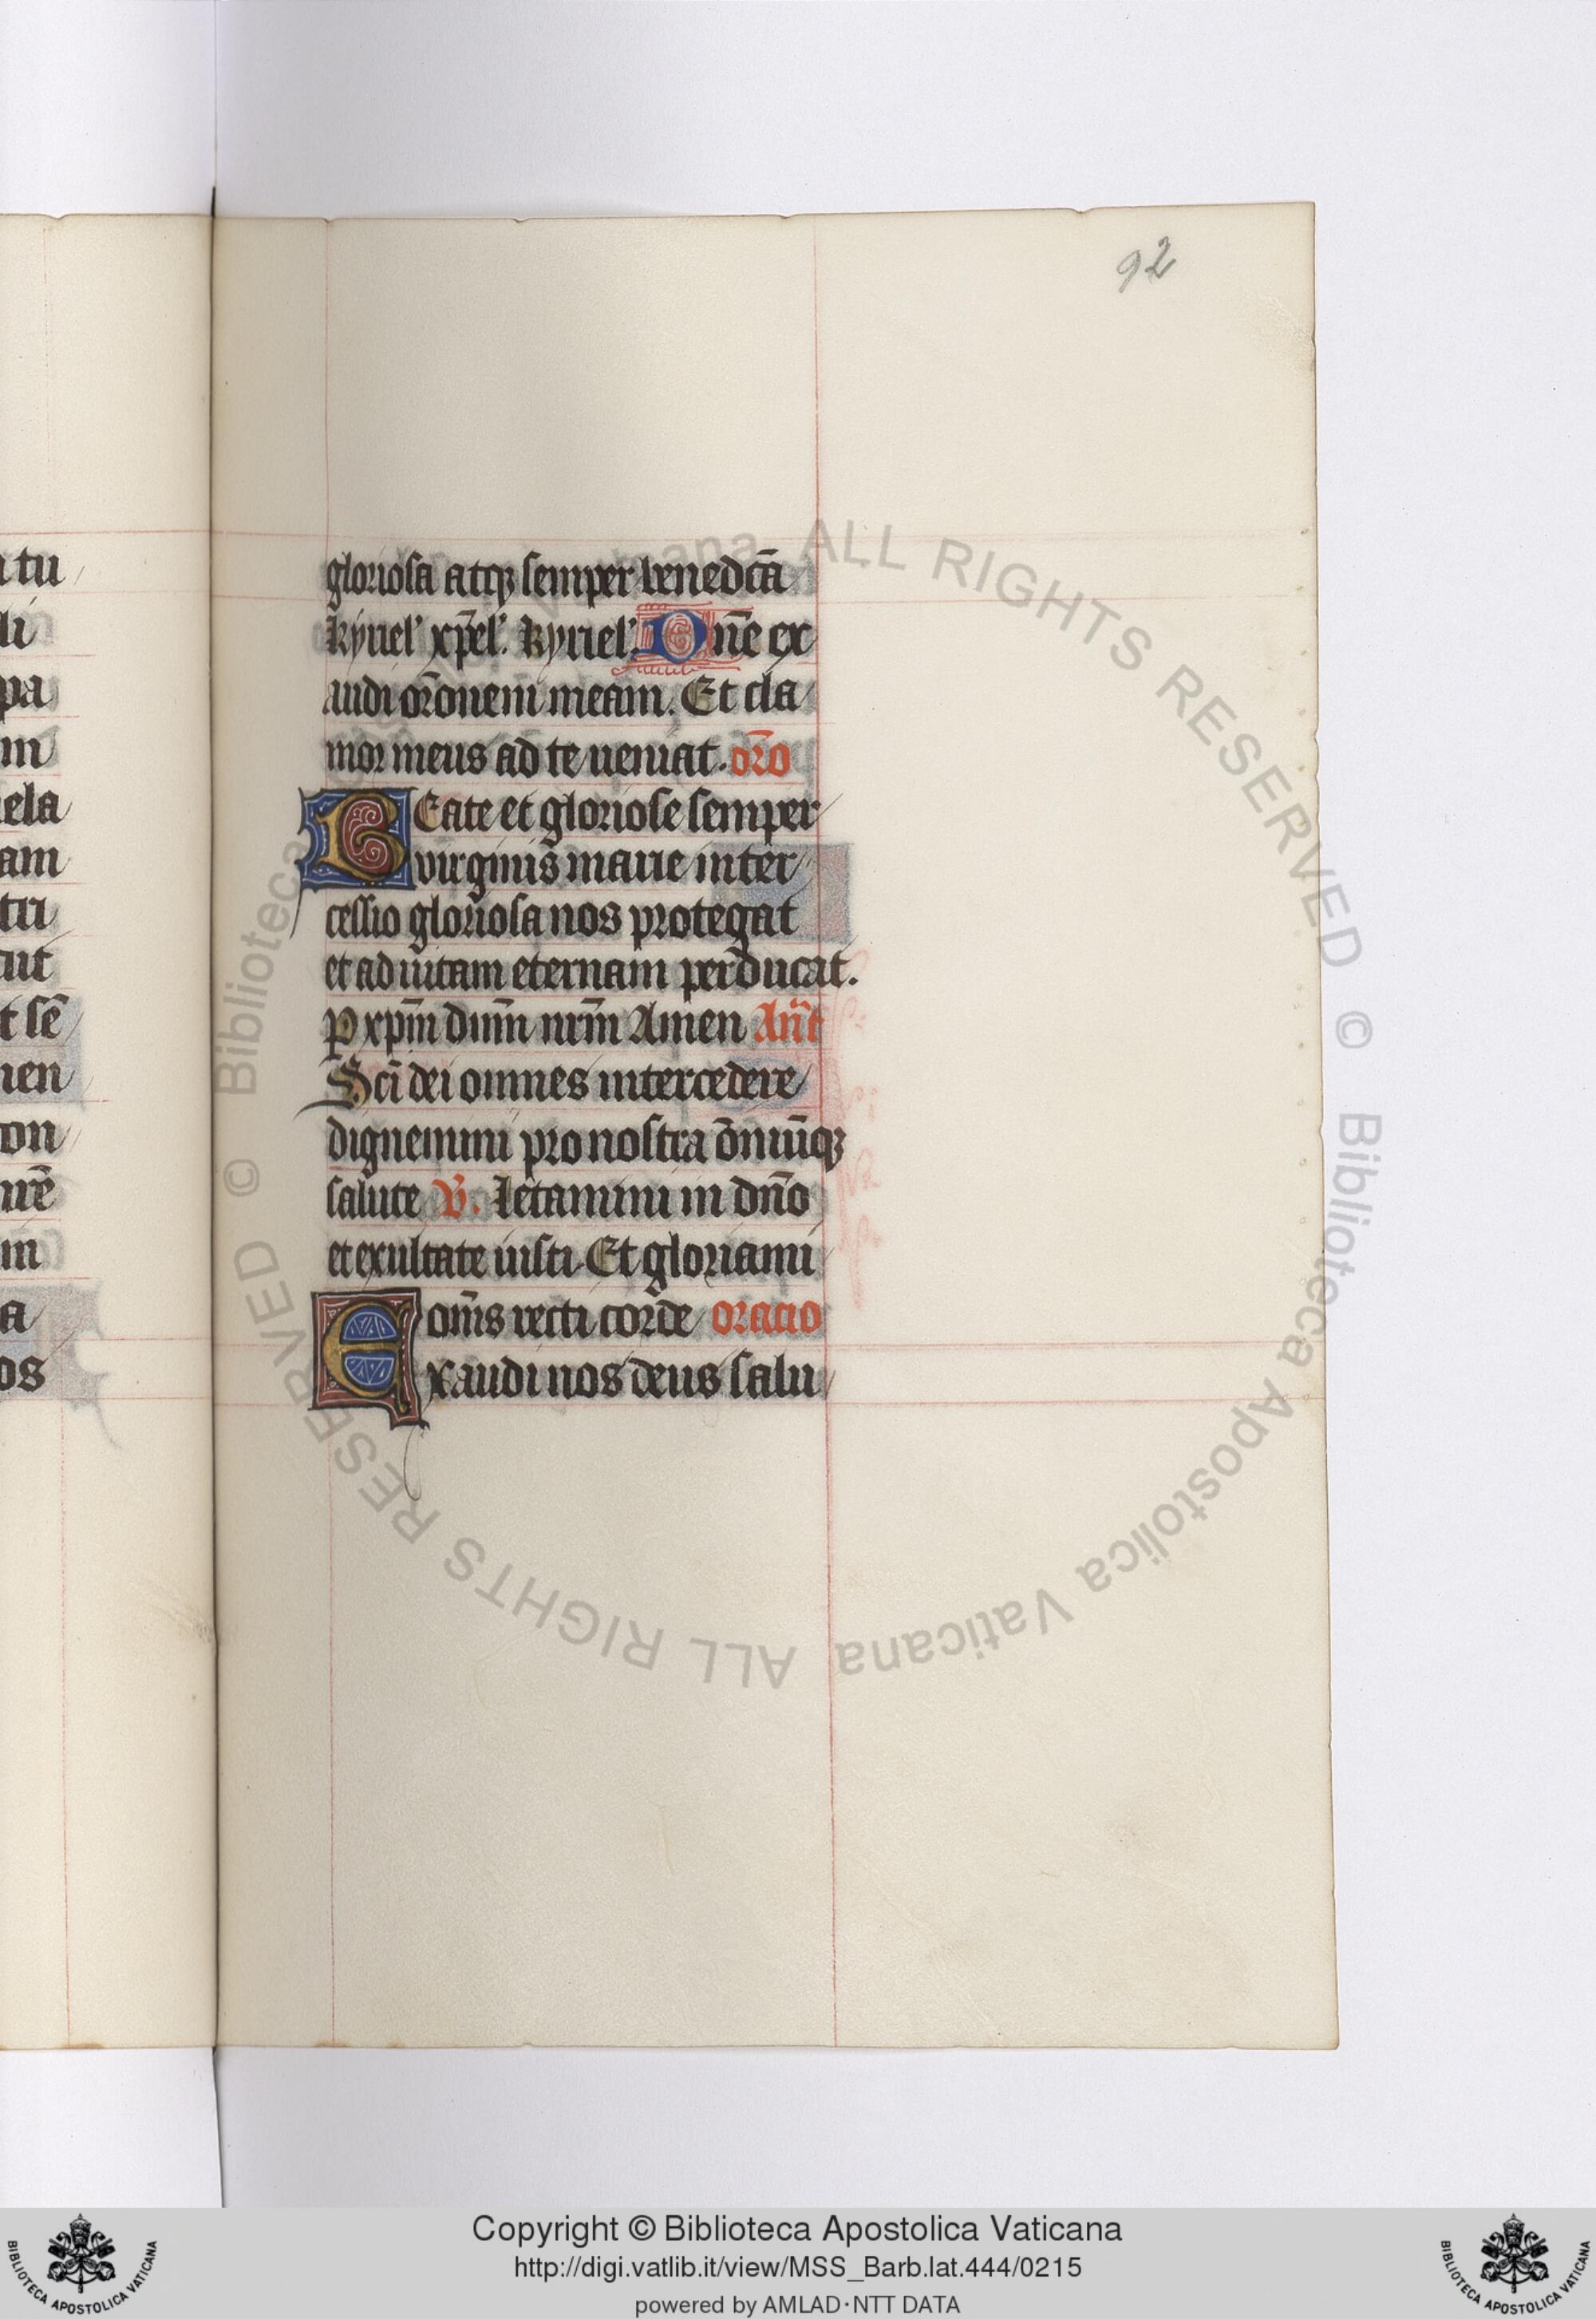 92
tu
li
pa
m
ela
am
tri
tut
t sē
men
on
m
a
os
gloriosa atqꝫ semper benedc̄a
kyriel' xp̄el'. kyriel'. Dn̄e ex
audi or̄onem meam. Et cla
mor meus ad te ueniat. or̄o
Beate et gloriose semper
virginis marie inter
cessio gloriosa nos protegat
et ad uitam eternam perducat.
P xp̄m dnm̄ nrm̄ Amen An̄t
Scī dei omnes intercedere
dignemini pro nostra om̄niūqꝫ
salute V. Letamini in dn̄o
et exultate iusti. Et gloriami
om̄s recti corde oracio
Exaudi nos deus salu
© Biblioteca Apostolica Vaticana ALL RIGHTS RESERVED © Biblioteca Apostolica Vaticana ALL RIGHTS RESERVED
Copyright © Biblioteca Apostolica Vaticana
http://digi.vatlib.it/view/MSS_Barb.lat.444/0215
powered by AMLAD·NTT DATA
BIBLIOTECA APOSTOLICA VATICANA
BIBLIOTECA APOSTOLICA VATICANA